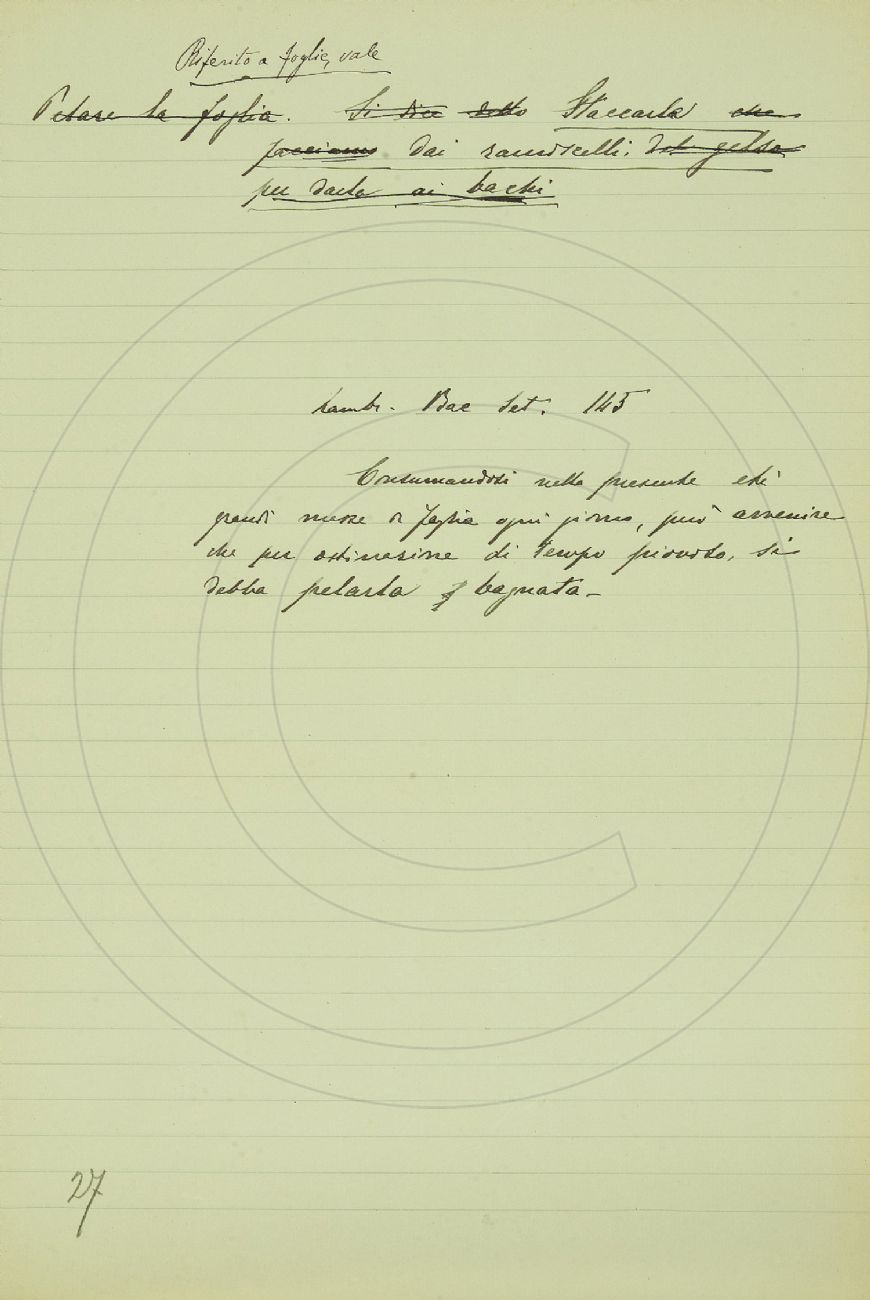 Riferito a foglie, vale
Pelare la foglia. Si dice dello Staccarla che
facciamo dai ramoscelli, del gelso
per darla ai bachi
Lambr. Bac Set. 145
Consumandosi nella presente età
grandi masse di foglia ogni giorno, può avvenire
che per ostinazione di tempo piovoso, si
debba pelarla bagnata_
27